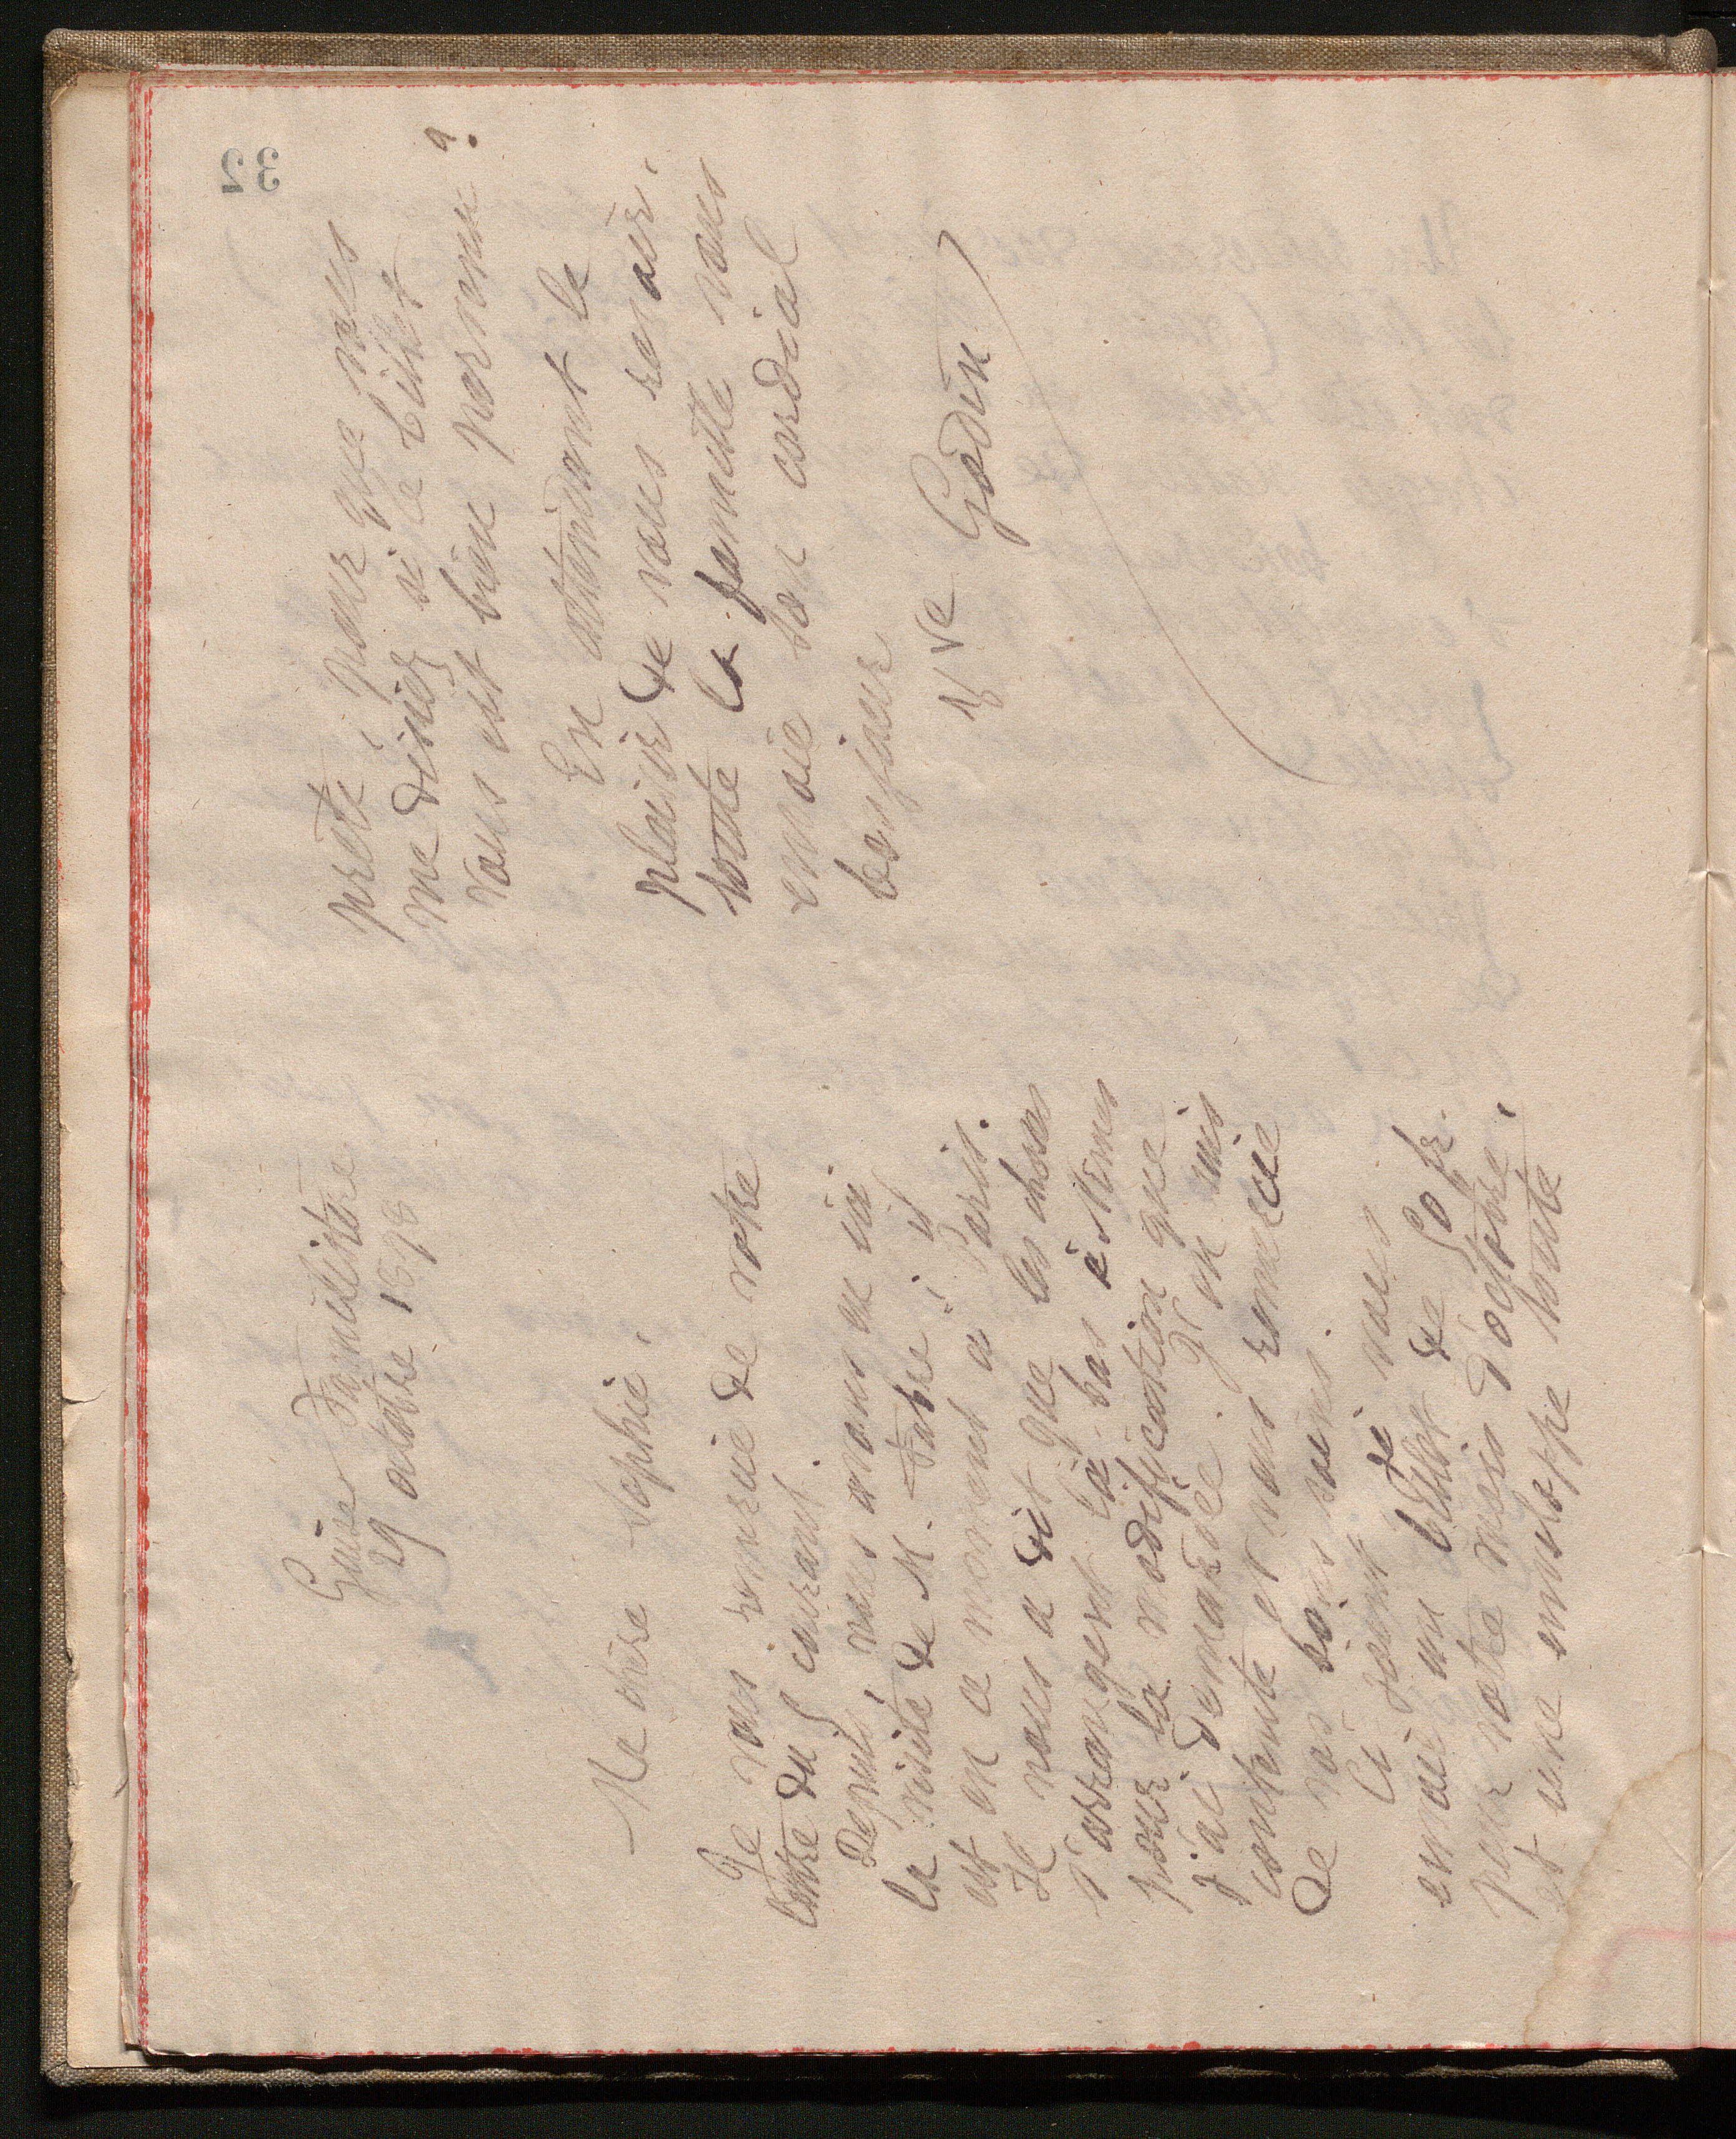 Guise Familistère
29 octobre 1898
Ma chère Sophie,
Je vous remercie de votre
lettre du 5 courant.
Depuis, nous avons eu ici
la visite de M. Fabre ; il
est en ce moment à Paris.
Il nous a dit que les choses
s'arrangent là-bas à Nîmes
pour la modification que
j'ai demandée. J'en suis
contente et vous remercie
de vos bons soins.
Ci joint je vous
envoie un billet de 50 fr.
pour votre mois d'octobre,
et une enveloppe toute
prête, pour que vous
me disiez si le billet
vous est bien parvenu ?
En attendant le
plaisir de vous revoir,
toute la famille vous
envoie son cordial
bonjour
Vve Godin
32